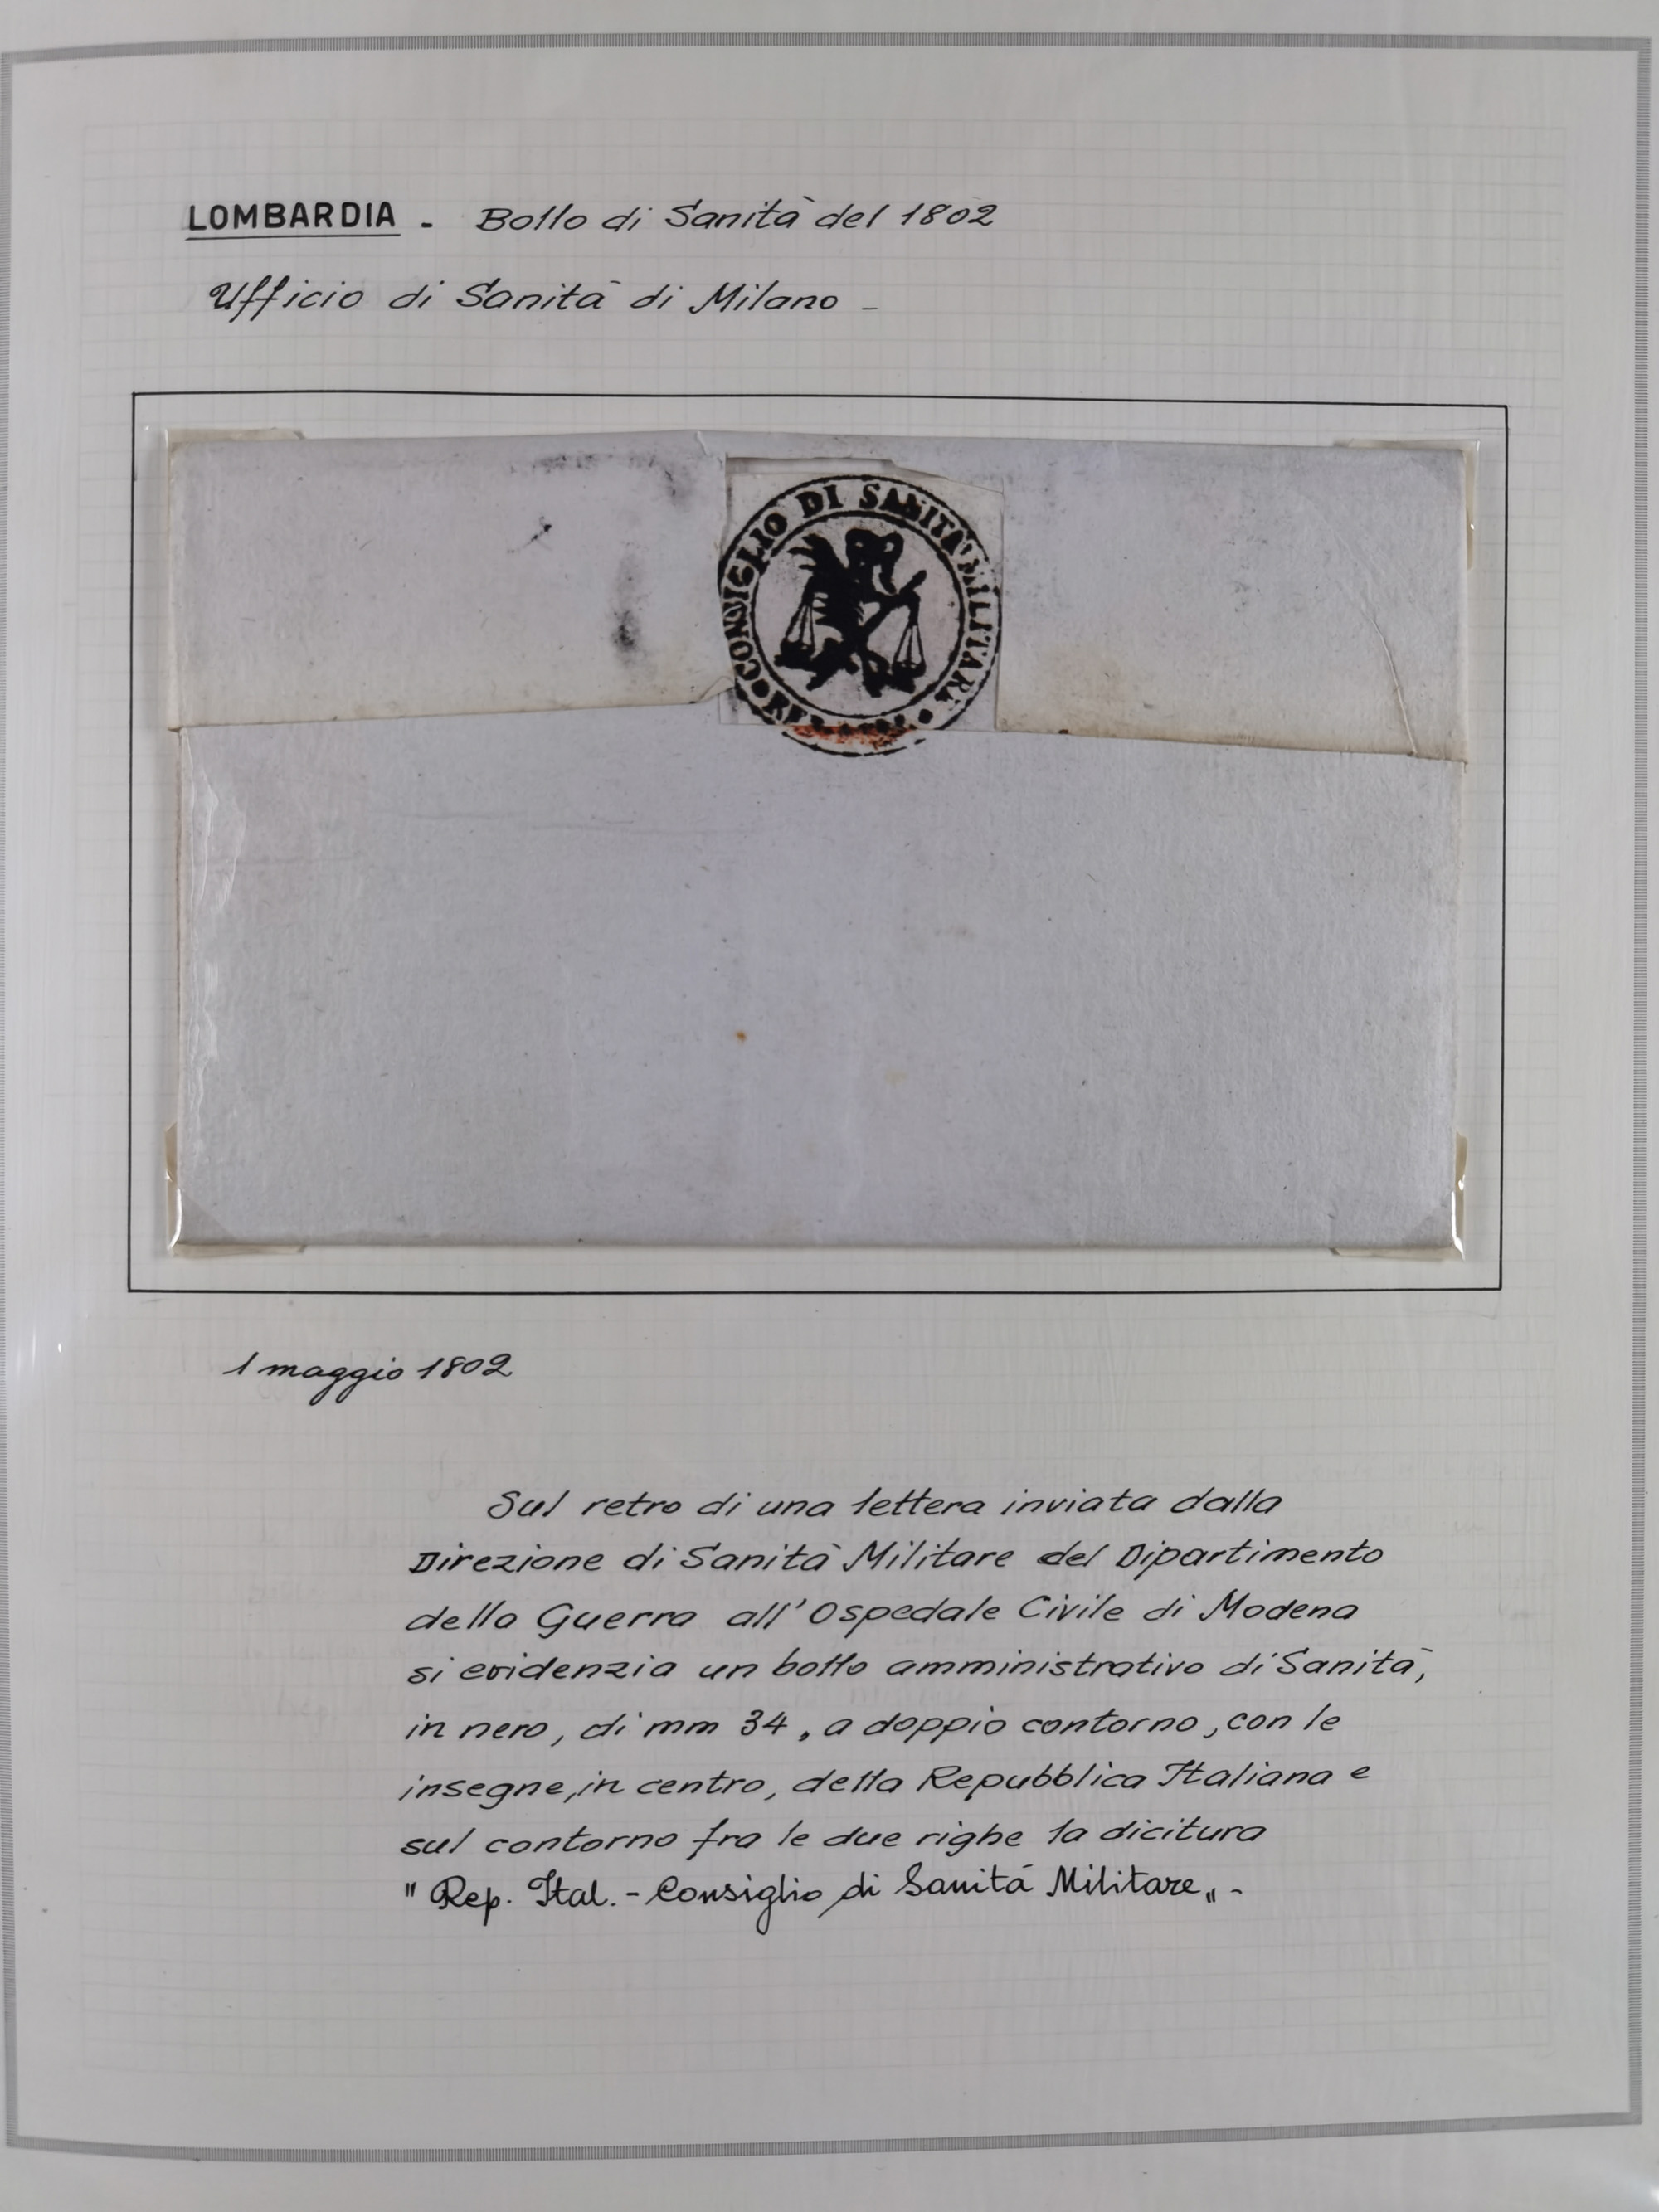 LOMBARDIA - Bollo di Sanità del 1802
Ufficio di Sanità di Milano -
CONSIGLIO DI SANITA' MILITARE
1 maggio 1802
Sul retro di una lettera inviata dalla
Direzione di Sanità Militare del Dipartimento
della Guerra all'Ospedale Civile di Modena
si evidenzia un bollo amministrativo di Sanità,
in nero, di mm 34, a doppio contorno, con le
insegne, in centro, della Repubblica Italiana e
sul contorno fra le due righe la dicitura
"Rep. Ital. - Consiglio di Sanità Militare„ -